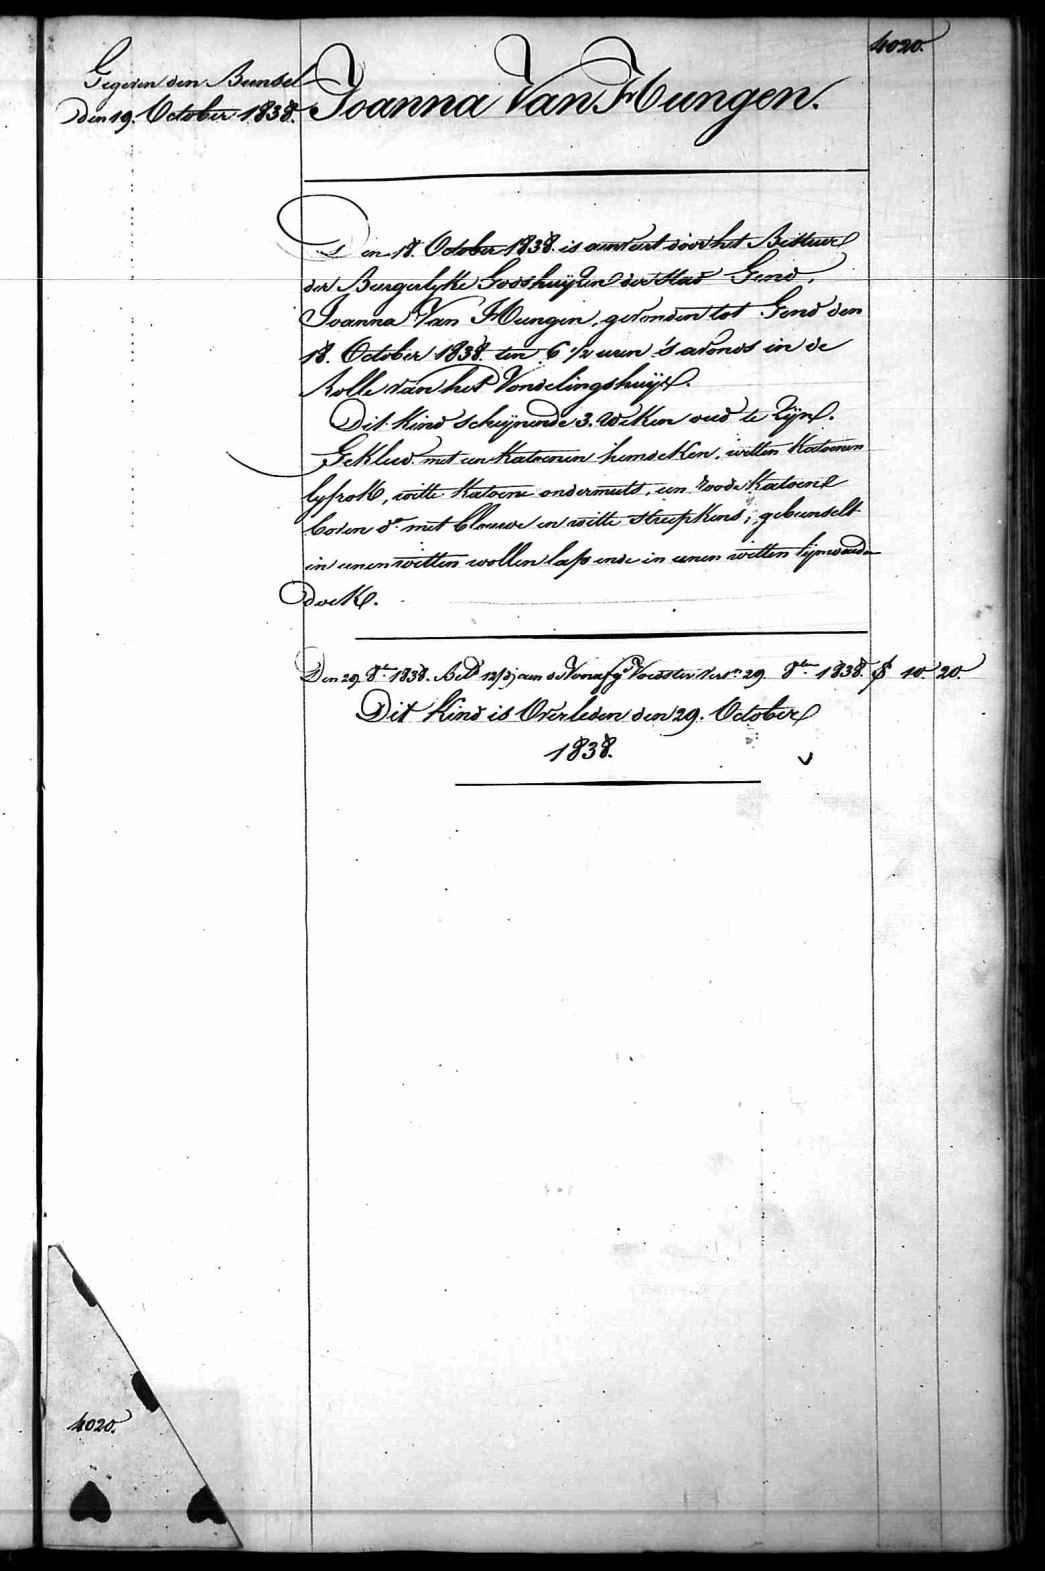 4020.
Gegeven den Bundel
den 19. October 1838.
Joanna Van Hungen.
Den 18. October 1838. is aenveird door het Bestuer
der Burgerlyke Godshuyzen der stad Gend,
Joanna Van Hungen, gevonden tot Gend den
18. October 1838. ten 6 1/2 uren 's avonds in de
Rolle van het Vondelingshuys.
Dit kind schynende 3. weken oud te zyn.
Gekleed met een katoenen hemdeken, witten katoenen
lyfrok, witte katoene ondermuts, een roode katoene
boven dº met blauwe en witte streepkens; gebundelt
in eenen witten wollen lap ende in eenen witten lynwaeden
doek.
Den 29 8bre 1838. Bet. aen de Voedster 29 8bre 1838. 10. 20.
Dit kind is Overleden den 29. October
1838.
4020.